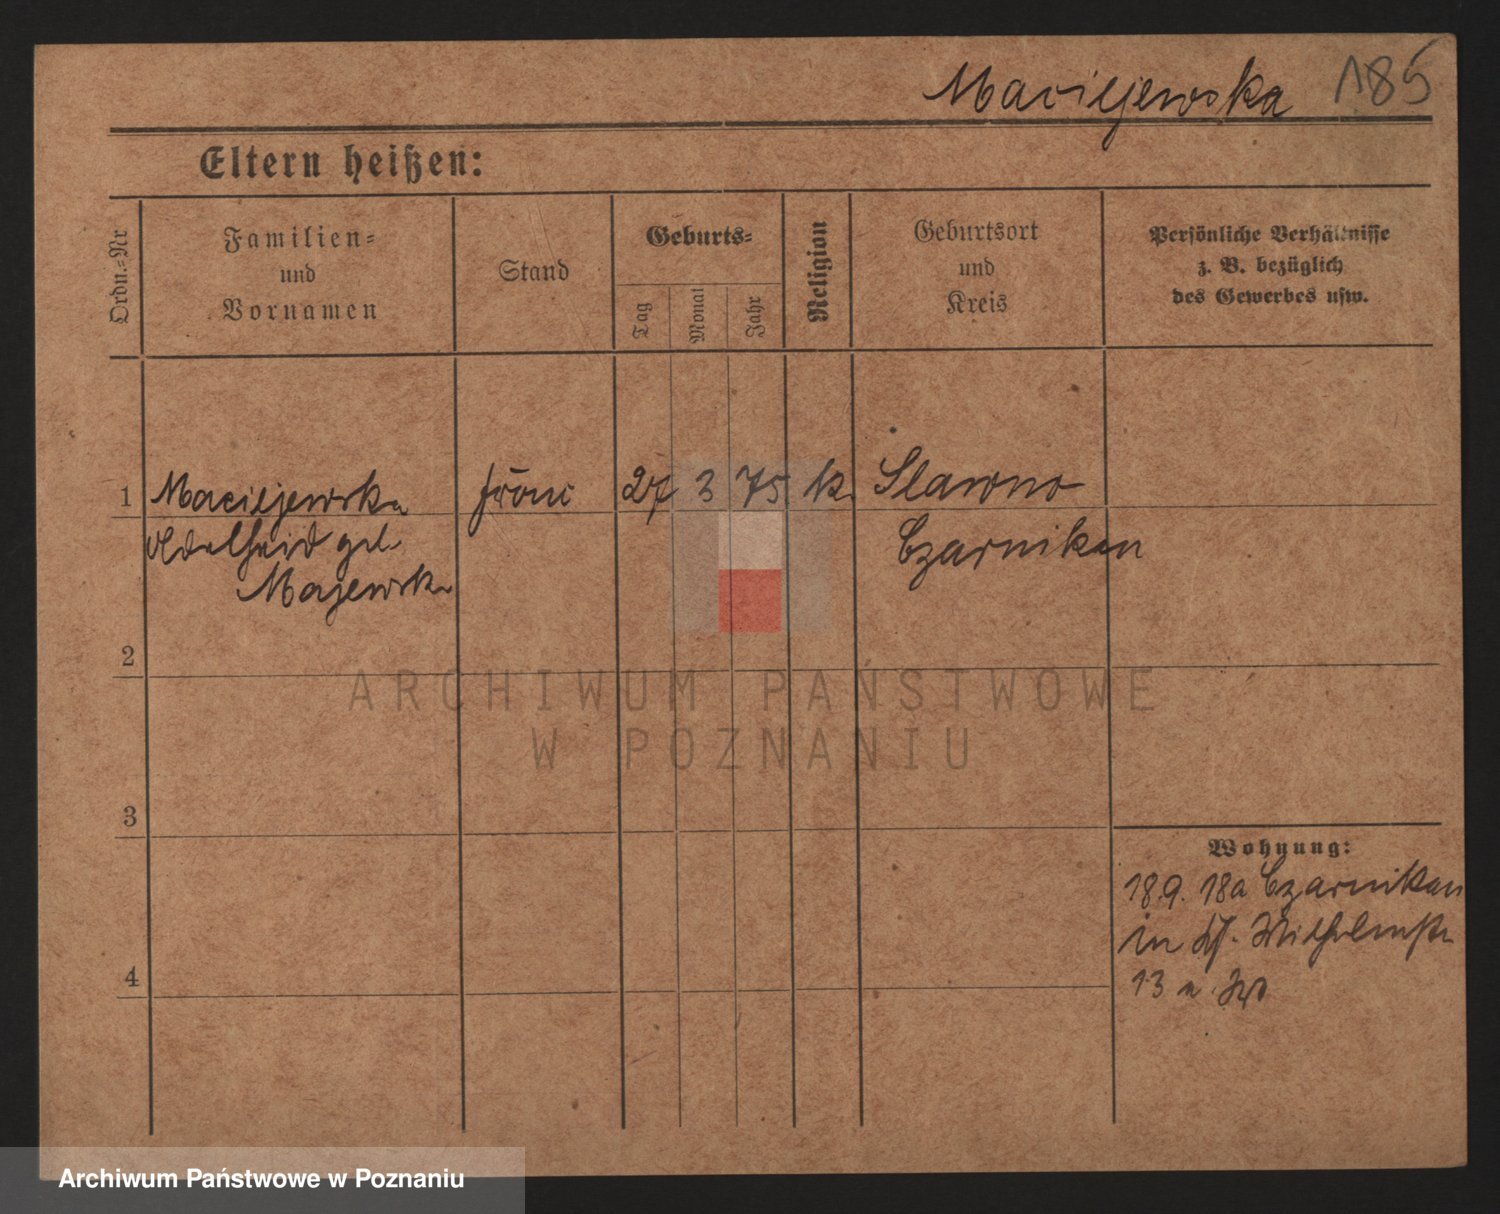 Maciejewska 185
Eltern heißen:
Ordn.-Nr
Familien-
und
Vornamen
Stand
Geburts-
Tag
Monat
Jahr
Religion
Geburtsort
und
Kreis
Persönliche Verhältnisse
z. B. bezüglich
des Gewerbes usw.
1 Maciejewska 27 3 75 k. Slawno
Adelheid geb. Czarnikau
Majewska
2
ARCHIWUM PAŃSTWOWE
W POZNANIU
3
Wohnung:
18.9. 18a Czarnikau
in Wilhelmstr.
4
13
Archiwum Państwowe w Poznaniu